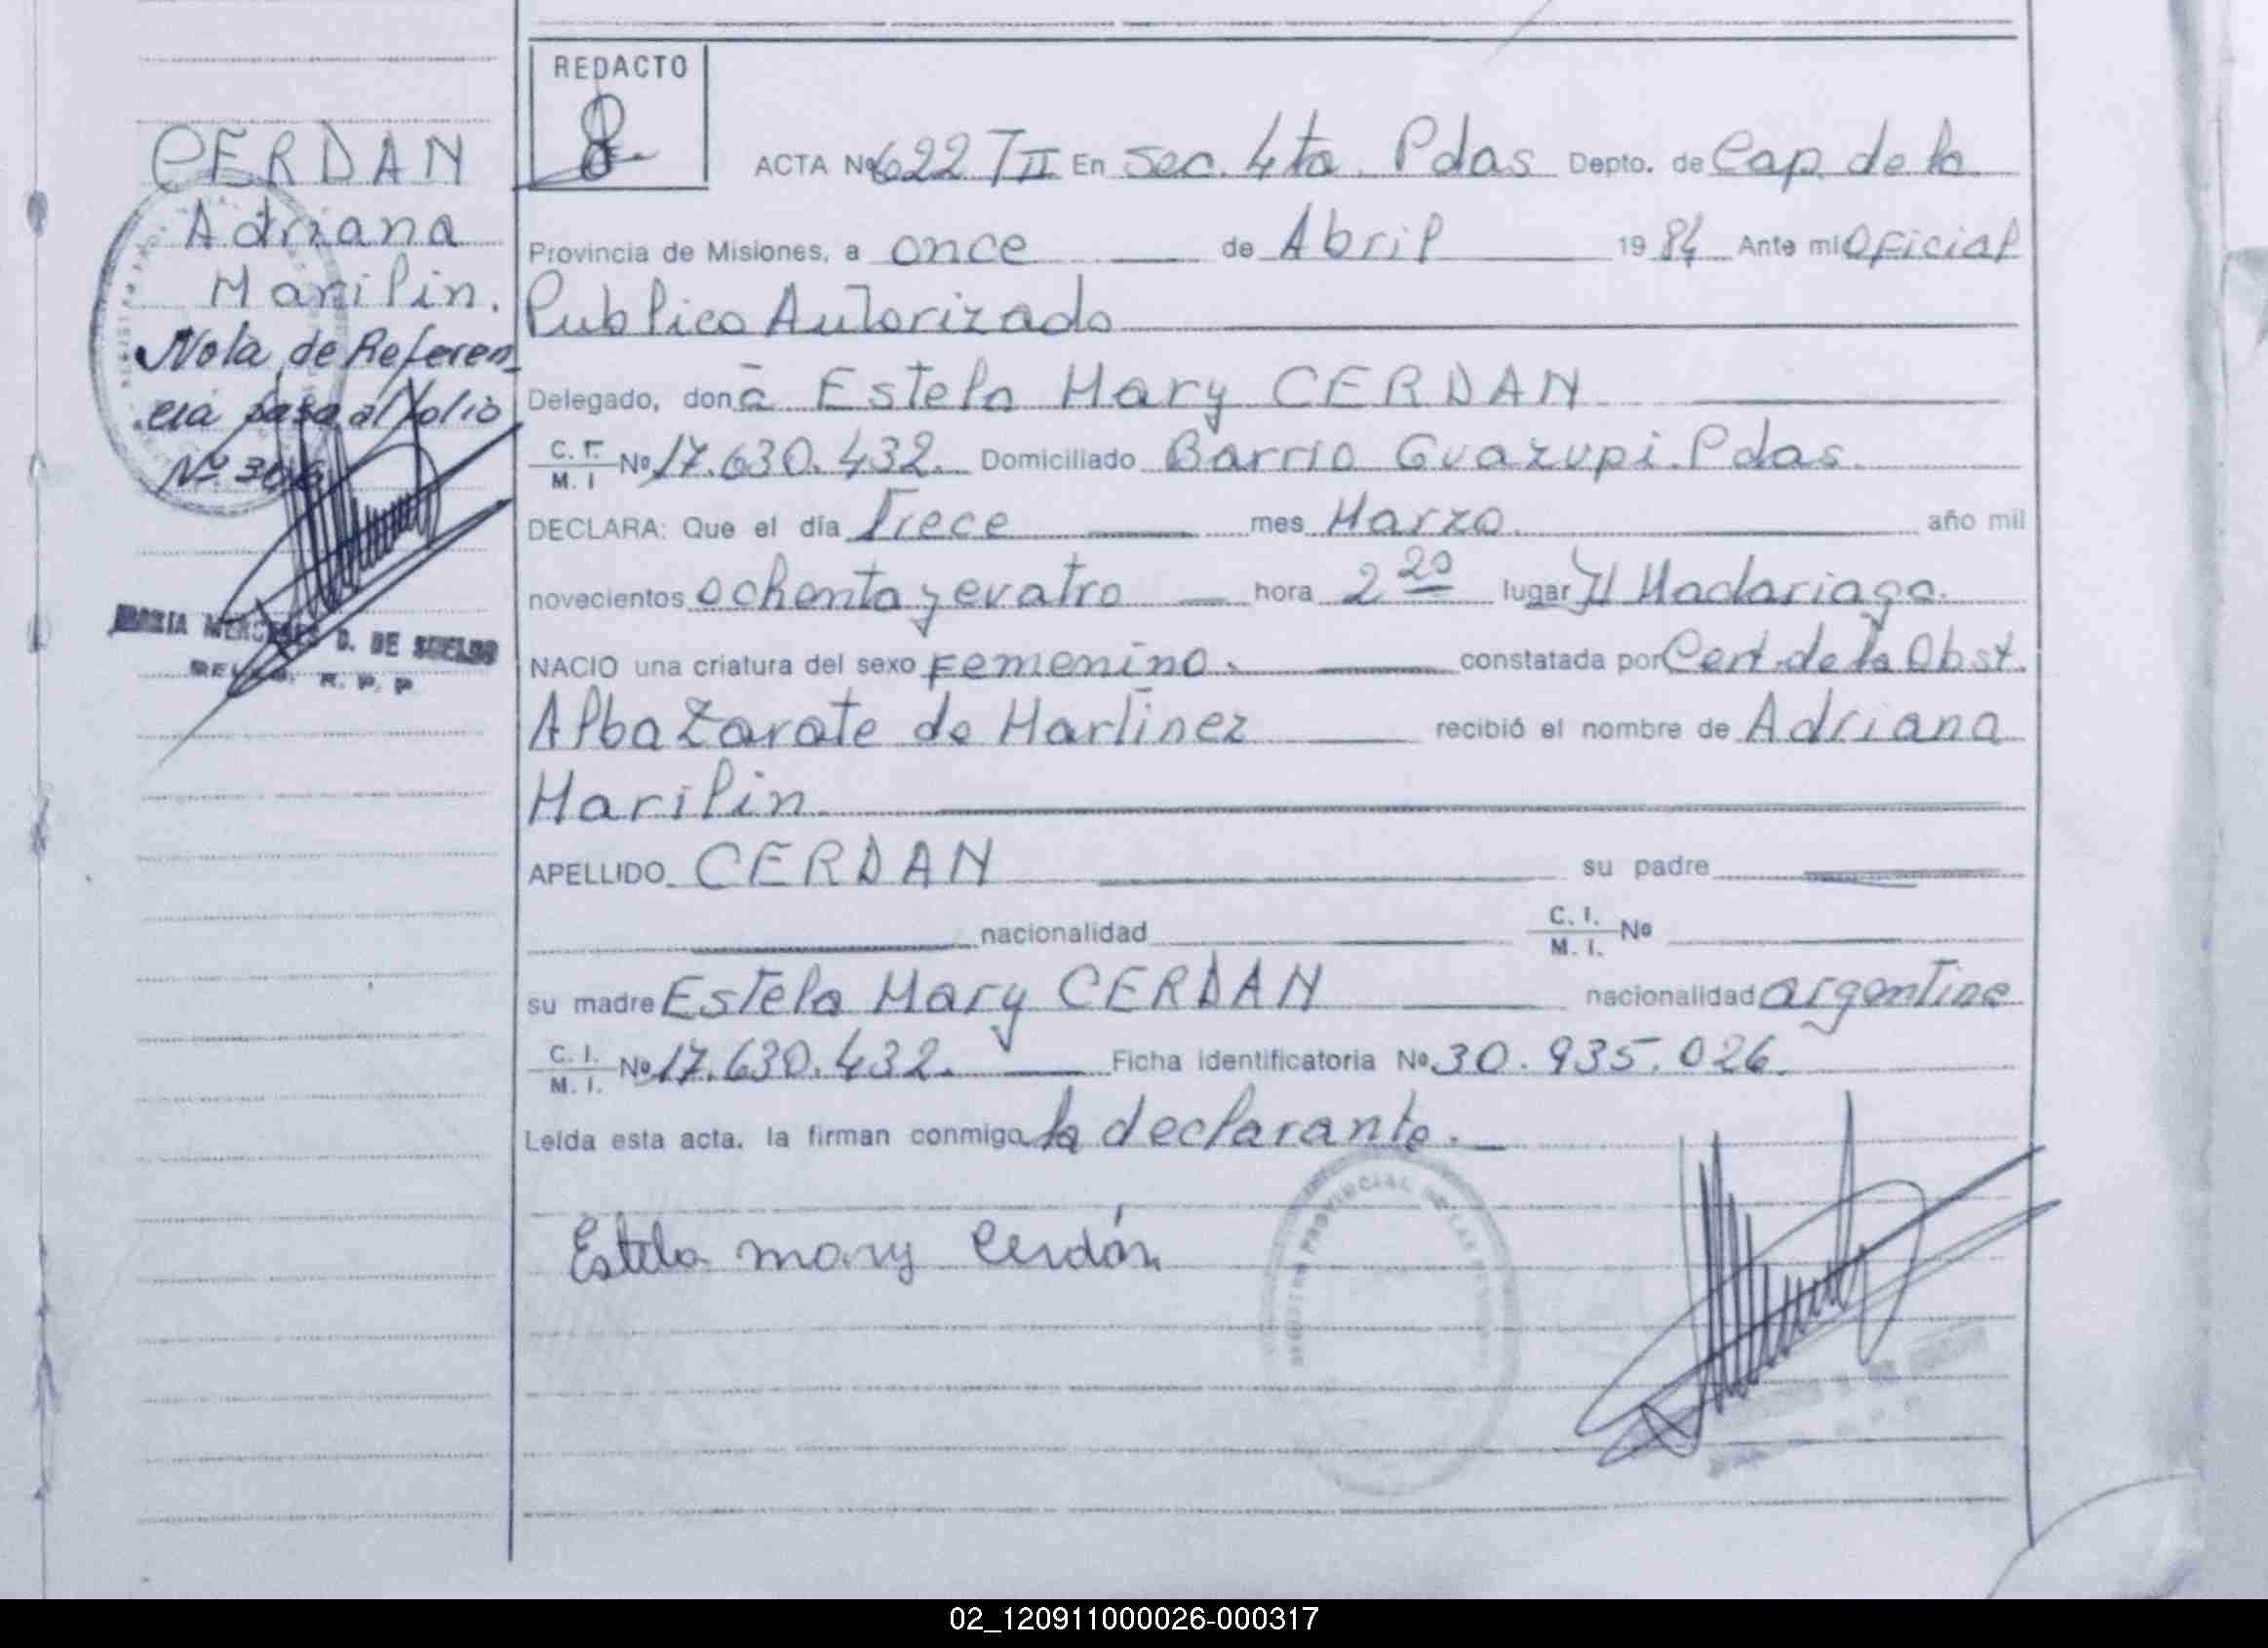 CERDAN
Adriana
Marilin.
Nota de Referen
cia pasa al folio
Nº 306
MARIA MERCEDES D. DE SUELDO
R. P. P
REDACTO
ACTA Nº 622 TII En Sec. 4ta. Pdas Depto. de Cap. de la
Provincia de Misiones, a once de Abril 1984 Ante mi Oficial
Publico Autorizado
Delegado, don a Estela Mary CERDAN
C. I. M. I Nº 17.630.432. Domiciliado Barrio Guazupi. Pdas.
DECLARA: Que el día Trece mes Marzo. año mil
novecientos ochenta y cuatro hora 2 20 lugar H Madariaga.
NACIO una criatura del sexo Femenino. constatada por Cert. de la Obst.
Alba Zarate de Martinez recibió el nombre de Adriana
Marilin
APELLIDO CERDAN su padre
nacionalidad C. I. M. I. Nº
su madre Estela Mary CERDAN nacionalidad argentina
C. I. M. I. Nº 17.630.432. Ficha identificatoria Nº 30.935.026.
Leída esta acta, la firman conmigo la declarante.
Estela mary Cerdán
REGISTRO PROVINCIAL DE LAS PERSONAS
02_120911000026-000317